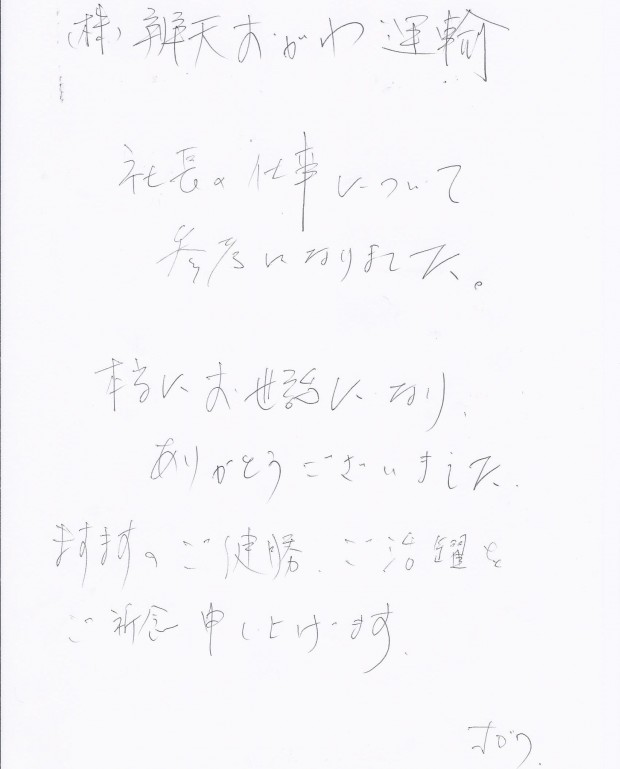 (株) 辨天おがわ運輸
社長の仕事について
参考になりました。
本当にお世話になり、
ありがとうございました.
ますますのご健勝、ご活躍を
ご祈念申し上げます.
おがわ.